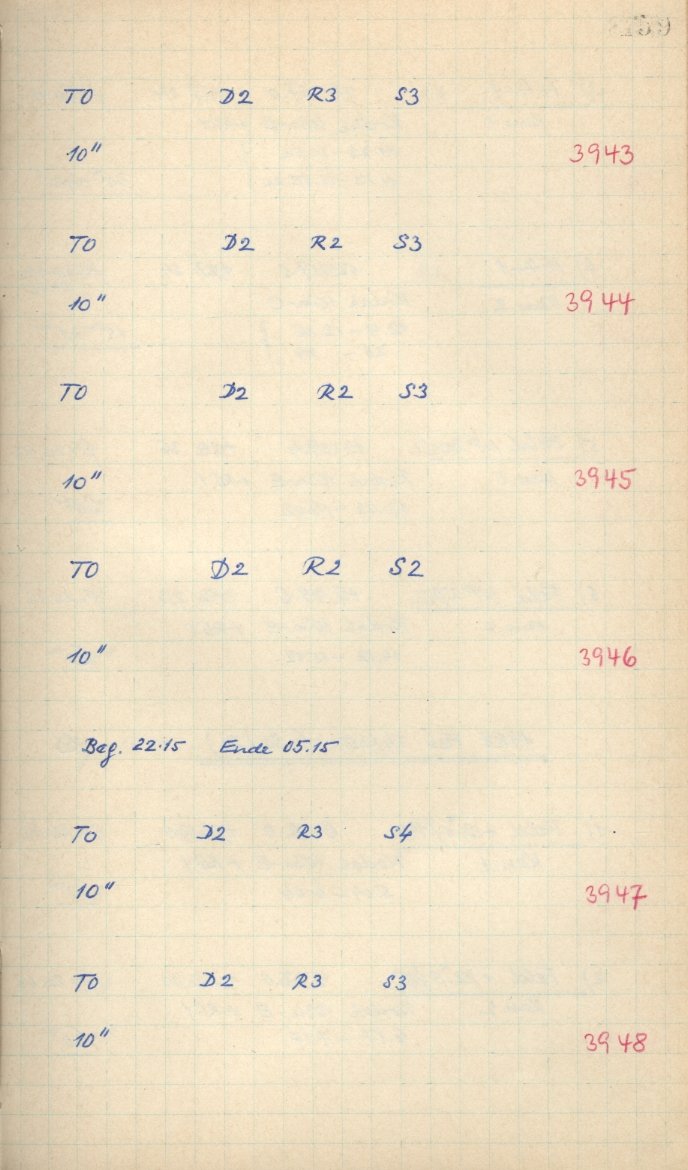 TO D2 R3 S3
10" 3943
TO D2 R2 S3
10" 3944
TO D2 R2 S3
10" 3945
TO D2 R2 S2
10" 3946
Beg. 22.15 Ende 05.15
TO D2 R3 S4
10" 3947
TO D2 R3 S3
10" 3948